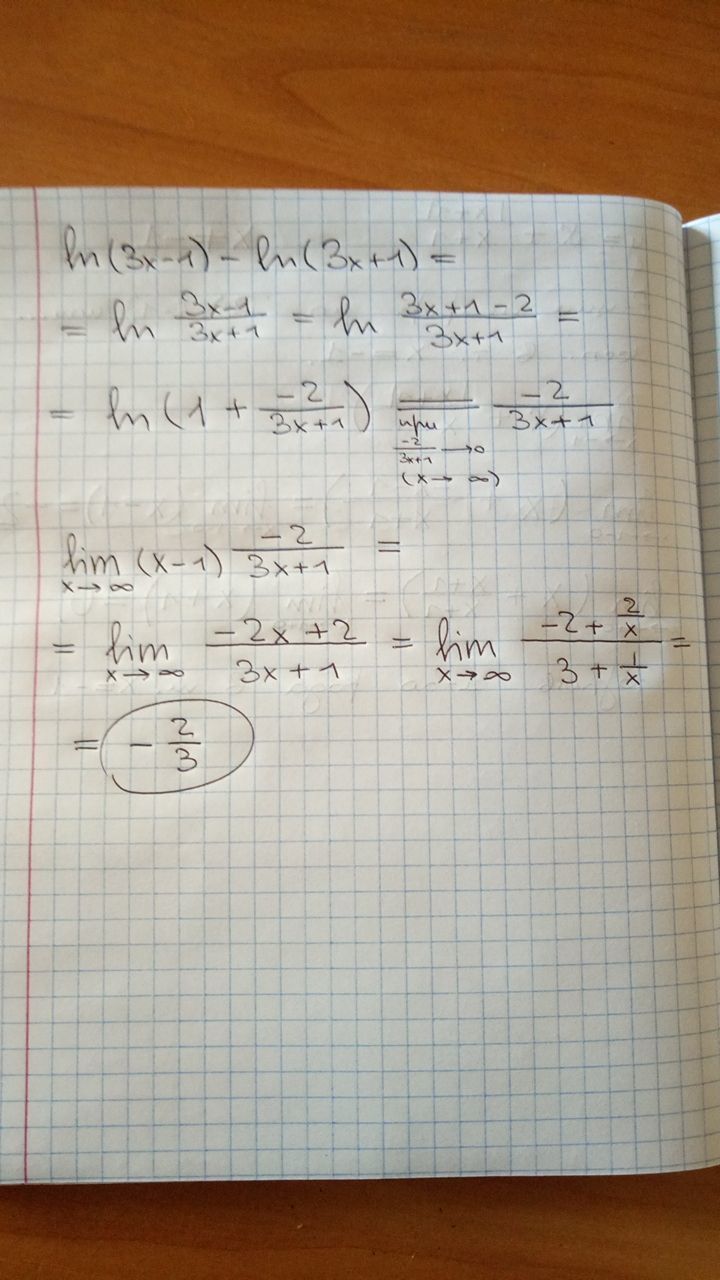 ln(3x-1) - ln(3x+1) =
= ln \frac{3x-1}{3x+1} = ln \frac{3x+1-2}{3x+1} =
= ln(1 + \frac{-2}{3x+1}) = при \frac{-2}{3x+1} → 0 (x → ∞) \frac{-2}{3x+1}
lim x→∞ (x-1) \frac{-2}{3x+1} =
= lim x→∞ \frac{-2x+2}{3x+1} = lim x→∞ \frac{-2+\frac{2}{x}}{3+\frac{1}{x}} =
= -\frac{2}{3}